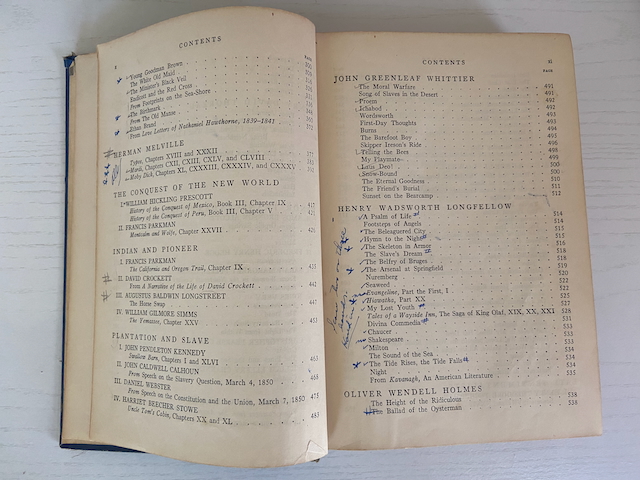 CONTENTS
PAGE
Young Goodman Brown
The White Old Maid
The Minister's Black Veil
Endicott and the Red Cross
From Footprints on the Sea-Shore
The Birthmark
From The Old Manse
Ethan Brand
From Love Letters of Nathaniel Hawthorne, 1839-1841
HERMAN MELVILLE
Typee, Chapters XVIII and XXXII
Mardi, Chapters CXII, CXIII, CXLV, and CLVIII
Moby Dick, Chapters XL, CXXXIII, CXXXIV, and CXXXV
THE CONQUEST OF THE NEW WORLD
I. WILLIAM HICKLING PRESCOTT
History of the Conquest of Mexico, Book III, Chapter IX 417
History of the Conquest of Peru, Book III, Chapter V 421
II. FRANCIS PARKMAN
Montcalm and Wolfe, Chapter XXVII 421
INDIAN AND PIONEER
I. FRANCIS PARKMAN
The California and Oregon Trail, Chapter IX 435
II. DAVID CROCKETT
From A Narrative of the Life of David Crockett 442
III. AUGUSTUS BALDWIN LONGSTREET
The Horse Swap 447
IV. WILLIAM GILMORE SIMMS
The Yemassee, Chapter XXV 453
PLANTATION AND SLAVE
I. JOHN PENDLETON KENNEDY
Swallow Barn, Chapters I and XLVI 463
II. JOHN CALDWELL CALHOUN
From Speech on the Slavery Question, March 4, 1850 468
III. DANIEL WEBSTER
From Speech on the Constitution and the Union, March 7, 1850 475
IV. HARRIET BEECHER STOWE
Uncle Tom's Cabin, Chapters XX and XL 483
CONTENTS xi
PAGE
JOHN GREENLEAF WHITTIER
The Moral Warfare 491
Song of Slaves in the Desert 491
Proem 492
Ichabod 492
Wordsworth 493
First-Day Thoughts 493
Burns 493
The Barefoot Boy 494
Skipper Ireson's Ride 495
Telling the Bees 498
My Playmate 499
Laus Deo! 500
Snow-Bound 500
The Eternal Goodness 510
The Friend's Burial 511
Sunset on the Bearcamp 512
HENRY WADSWORTH LONGFELLOW
A Psalm of Life 514
Footsteps of Angels 514
The Beleaguered City 515
Hymn to the Night 515
The Skeleton in Armor 516
The Slave's Dream 518
The Belfry of Bruges 518
The Arsenal at Springfield 519
Nuremberg 520
Seaweed 522
Evangeline, Part the First, I 522
Hiawatha, Part XX 525
My Lost Youth 527
Tales of a Wayside Inn, The Saga of King Olaf, XIX, XX, XXI 528
Divina Commedia 531
Chaucer 533
Shakespeare 533
Milton 534
The Sound of the Sea 534
The Tide Rises, the Tide Falls 534
Night 534
From Kavanagh, An American Literature 535
OLIVER WENDELL HOLMES
The Height of the Ridiculous 538
The Ballad of the Oysterman 538